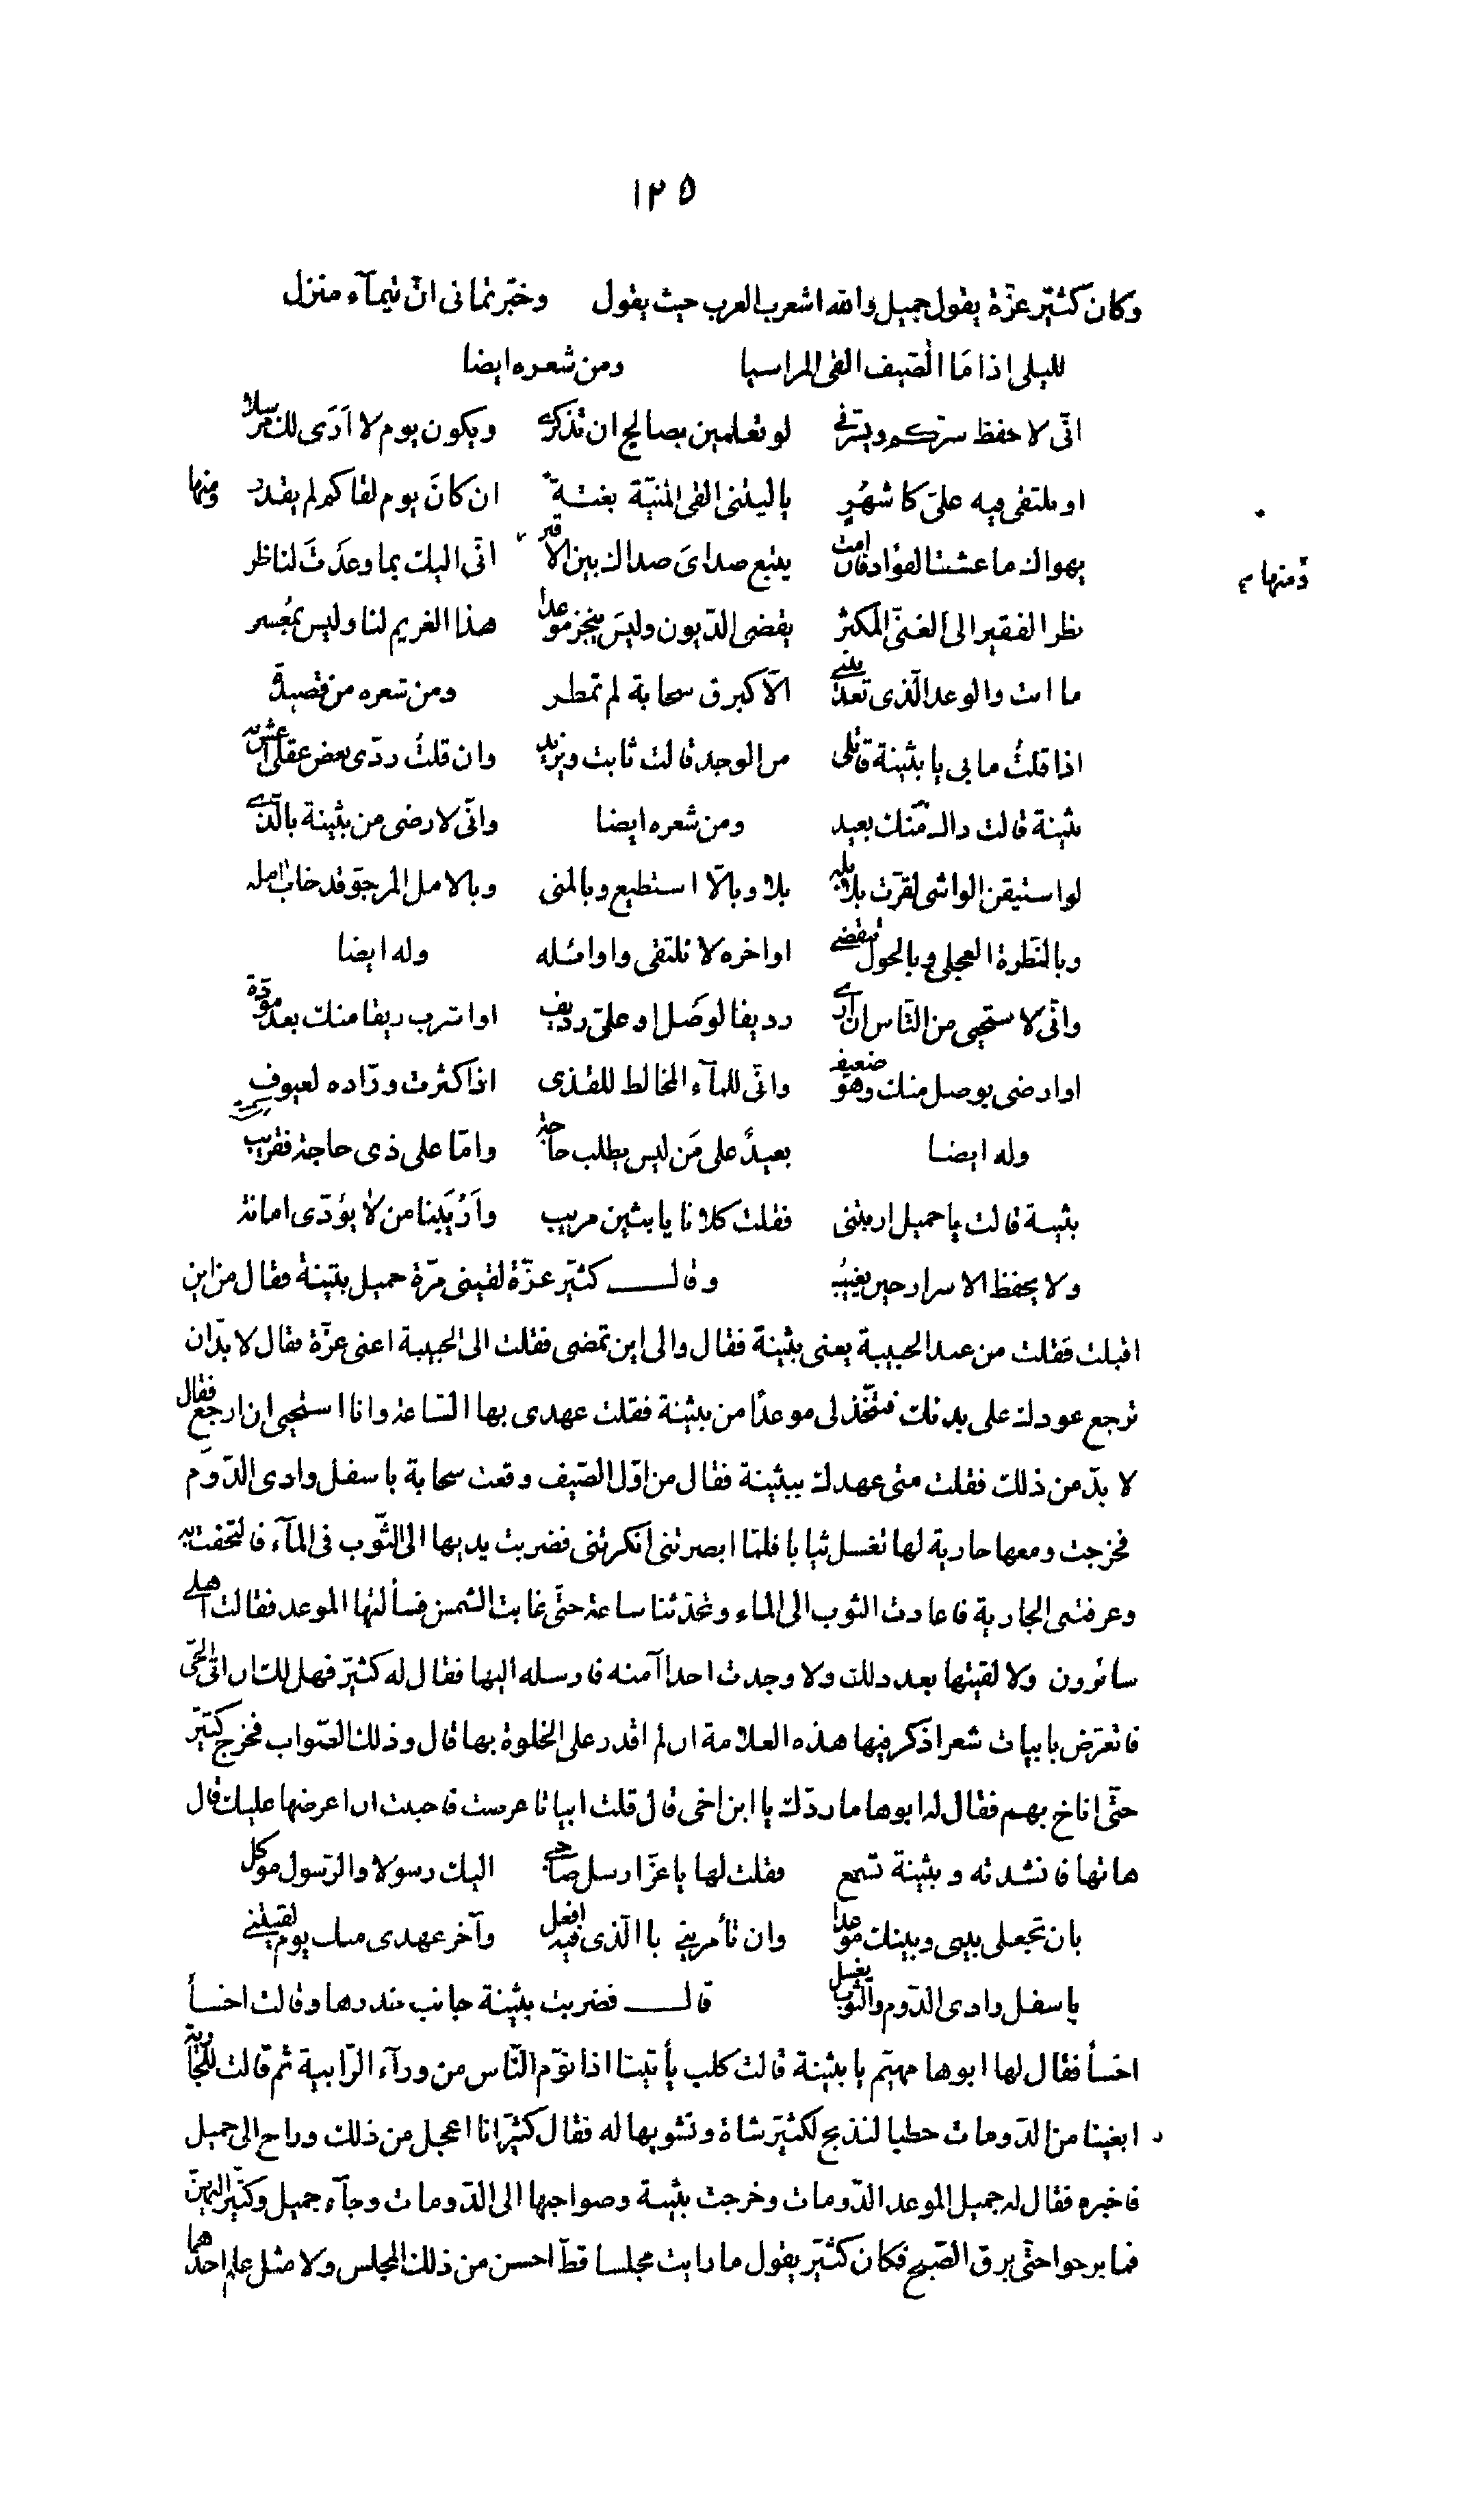 ١٢٥
وكان كثيّر عزّة يقول جميل والله اشعر العرب حيث يقول وخبّرتمانى انّ تيمآء منزل
لليلى اذا مَا الصّيف القى المراسيا ومن شعره ايضا
انّى لاحفظ سرّكم ويسرّنى لو تعلمين بصالح ان تذكرى ويكون يوم لا اَرَى لك مرسلا
او نلتقى فيه علىّ كاشهُرٍ ياليتنى القى المنيّة بغتة ان كانَ يوم لقاكم لم يقدر ومنها
يهواك ما عشت الفؤاد فان امت يتبع صداىَ صداك بين الاقبر انّى اليك بما وعَدَتَ لناظر
ومنها
نظر الفقير الى الغنىّ المكثر يقضى الدّيون وليسَ ينجز موعدا هذا الغريم لنا وليس بمُعسر
ما انت والوعد الّذى تعدينى الّا كبرق سحابة لم تمطر ومن شعره من قصيدة
اذا قلتُ ما بى يا بثينة قاتلى من الوجد قالت ثابت ويزيد وان قلتُ ردّى بعض عقلى اعش به
بثينة قالت ذاك منك بعيد ومن شعره ايضا وانّى لارضى من بثينة بالّذى
لو استيقن الواشى لقرّت بلابله بلا وبالّا استطيع وبالمنى وبالامل المرجوّ قد خاب امله
وبالنّظرة العجلى وبالحول تنقضى اواخره لا نلتقى واوائله وله ايضا
وانّى لاستحيى من النّاس ان ارى رديفا لوصَل او علىّ رديف او اشرب ريقا منك بعد مودّة
او ارضى بوصل منك وهو ضعيف وانّى للمآء المخالط للقذى اذا كثرت ورّاده لعيوف
وله ايضا بعيدٌ على مَن ليس يطلب حاجة وامّا على ذى حاجة فقريب
بثينة قالت يا جميل اربتنى فقلت كلانا يا بثين مريب واَرْيَبُنا من لا يؤدّى امانة
ولا يحفظ الاسرار حين يغيبُ وقال كثيّر عزّة لقينى مرّة جميل بثينة فقال من اين
اقبلت فقلت من عند الحبيبة يعنى بثينة فقال والى اين تمضى فقلت الى الحبيبة اعنى عزّة فقال لا بدّ ان
ترجع عودك على بدئك فتتّخذ لى موعدًا من بثينة فقلت عهدى بها السّاعة وانا استحيى ان ارجع فقال
لا بدّ من ذلك فقلت متى عهدك ببثينة فقال من اوّل الصّيف وقعت سحابة باسفل وادى الدّوم
فخرجت ومعها جارية لها تغسل ثيابا فلمّا ابصرتنى انكرتنى فضربت يديها الى الثّوب فى المآء فالتحفت به
وعرفتنى الجارية فاعادت الثوب الى الماء وتحدّثنا ساعة حتّى غابت الشمس فسألتها الموعد فقالت اهلى
سائرون ولا لقيتها بعد ذلك ولا وجدت احدا آمنه فارسله اليها فقال له كثيّر فهل لك ان اتى الحىّ
فاتعرّض بابيات شعر اذكر فيها هذه العلامة ان لم اقدر على الخلوة بها قال وذلك الصّواب فخرج كثيّر
حتّى اناخ بهم فقال له ابوها ما ردّك يا ابن اخى قال قلت ابياتا عرضت فاحببت ان اعرضها عليك قال
هاتها فانشدته وبثينة تسمع فقلت لها يا عزّ ارسل صاحبى اليك رسولا والرّسول موكّل
بان تجعلى بينى وبينك موعدا وان تأمرينى با الّذى فيه افعل وآخر عهدى منك يوم لقيتنى
باسفل وادى الدّوم والثوب يغسل قال فضربت بثينة جانب خدرها وقالت اخسأ
اخسأ فقال لها ابوها مهيّم يا بثينة قالت كلب يأتينا اذا نوّم النّاس من ورآء الرّابية ثم قالت للجارية
ابغينا من الدّومات حطبا لنذبح لكثيّر شاة ونشويها له فقال كثيّر انا اعجل من ذلك وراح الى جميل
فاخبره فقال له جميل الموعد الدّومات وخرجت بثينة وصواحبها الى الدّومات وجآء جميل وكثيّر اليهنّ
فما برحوا حتّى برق الصّبح فكان كثيّر يقول ما رايت مجلسا قطّ احسن من ذلك المجلس ولا مثل علم احدهما